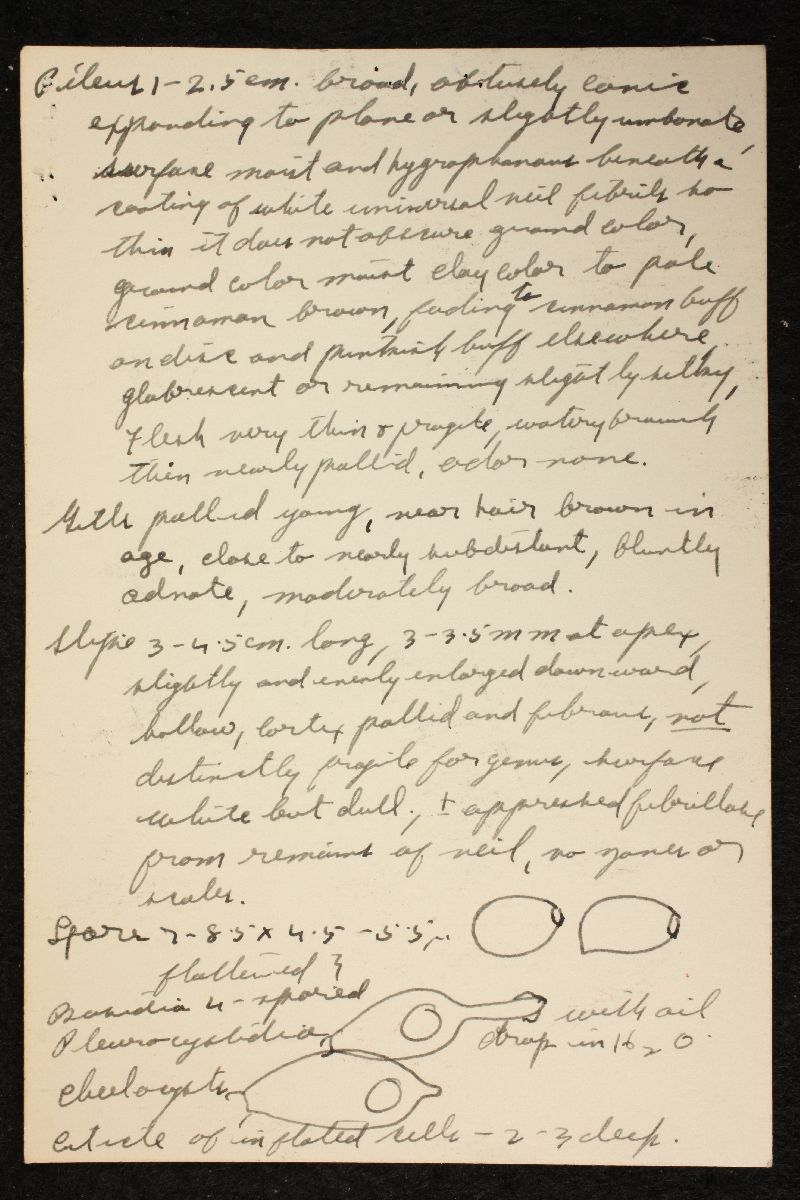 Pileus 1-2.5 cm. broad, obtusely conic
expanding to plane or slightly umbonate,
surface moist and hygrophanous beneath a
coating of white universal veil fibrils so
thin it does not obscure ground color,
ground color moist clay color to pale
cinnamon brown, fading to cinnamon buff
on disc and pinkish buff elsewhere,
glabrescent or remaining slightly silky,
Flesh very thin & fragile, watery brownish
then nearly pallid, odor none.
Gills pallid young, near hair brown in
age, close to nearly subdistant, bluntly
adnate, moderately broad.
Stipe 3-4.5 cm. long, 3-3.5 mm at apex,
slightly and evenly enlarged downward,
hollow, cortex pallid and fibrous, not
distinctly fragile for genus, surface
white but dull, ± appressed fibrillose
from remains of veil, no zones or
scales.
Spores 7-8.5 x 4.5-5.5 µ.
flattened
Basidia 4-spored
Pleurocystidia with oil
drop in H2O
Cheilocysts
Cuticle of inflated cells - 2-3 deep.